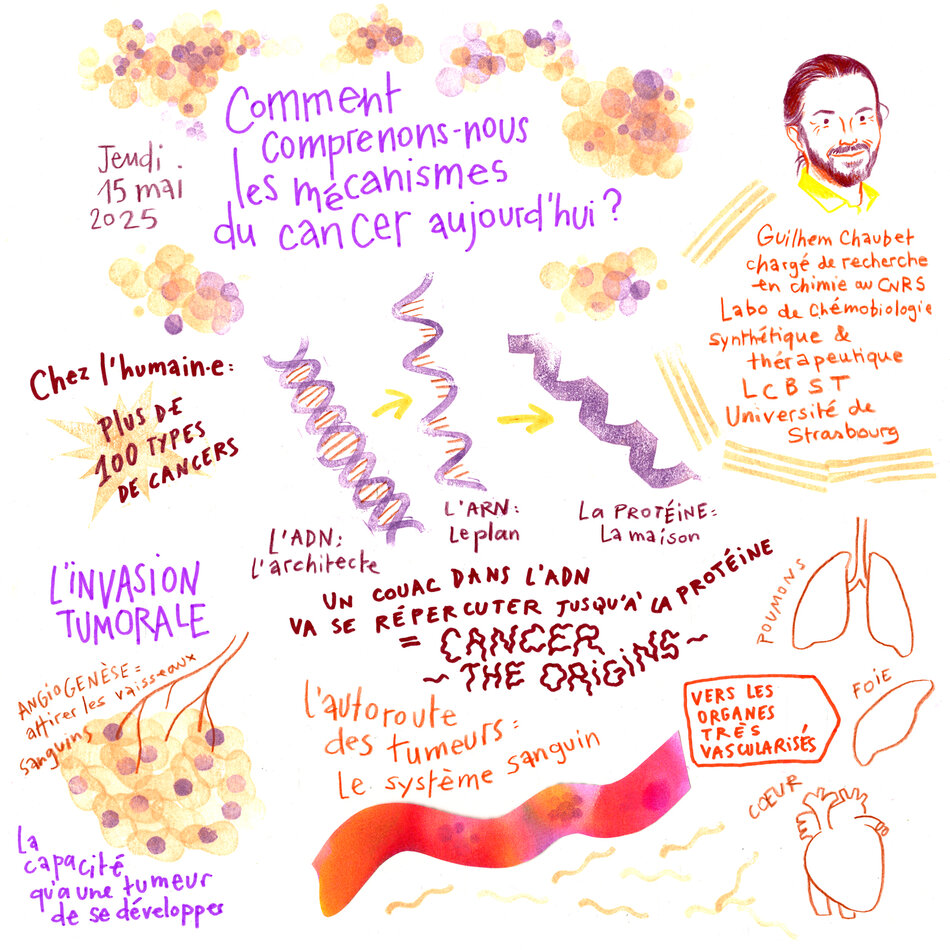 Jeudi.
15 mai
2025
Comment
comprenons-nous
les mécanismes
du cancer aujourd'hui ?
Guilhem Chaubet
chargé de recherche
en chimie au CNRS
Labo de Chémobiologie
synthétique &
thérapeutique
LCBST
Université de
Strasbourg
Chez l'humain·e :
PLUS DE
100 TYPES
DE CANCERS
L'ADN :
L'architecte
L'ARN :
Le plan
La PROTÉINE =
La maison
UN COUAC DANS L'ADN
VA SE RÉPERCUTER JUSQU'À LA PROTÉINE
= CANCER
~ THE ORIGINS ~
L'INVASION
TUMORALE
ANGIOGENÈSE =
attirer les vaisseaux
sanguins
La
capacité
qu'a une tumeur
de se développer
L'autoroute
des tumeurs :
Le système sanguin
VERS LES
ORGANES
TRÈS
VASCULARISÉS
POUMONS
FOIE
COEUR